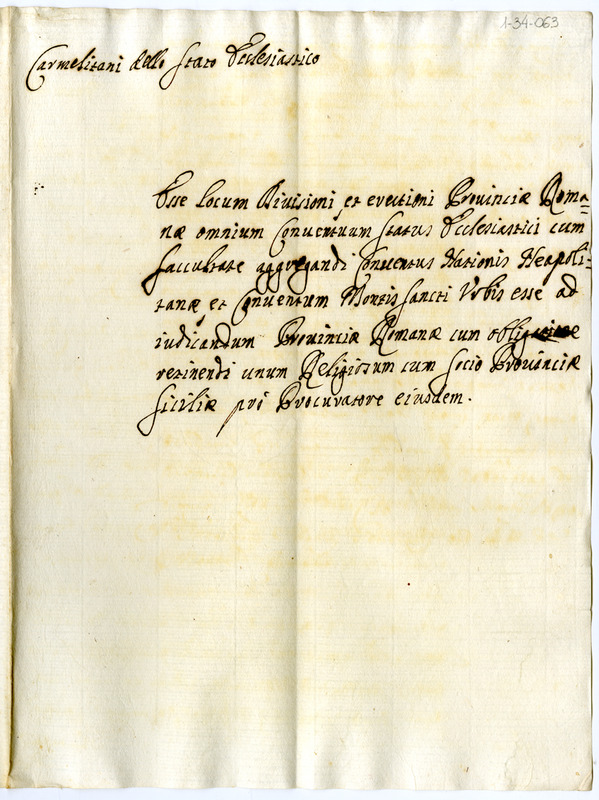 1-34-063
Carmelitani dello Stato Ecclesiastico
Esse locum Divisioni et erectioni Provinciæ Roma=
næ omnium Conventuum Status Ecclesiastici cum
facultate aggregandi Conventus Nationis Neapoli=
tanæ et Conventum Montis sancti Urbis esse ad
iudicandum Provinciæ Romanæ cum obligatione
retinendi unum Religiosum cum socio Provinciæ
Siciliæ pro Procuratore eiusdem.